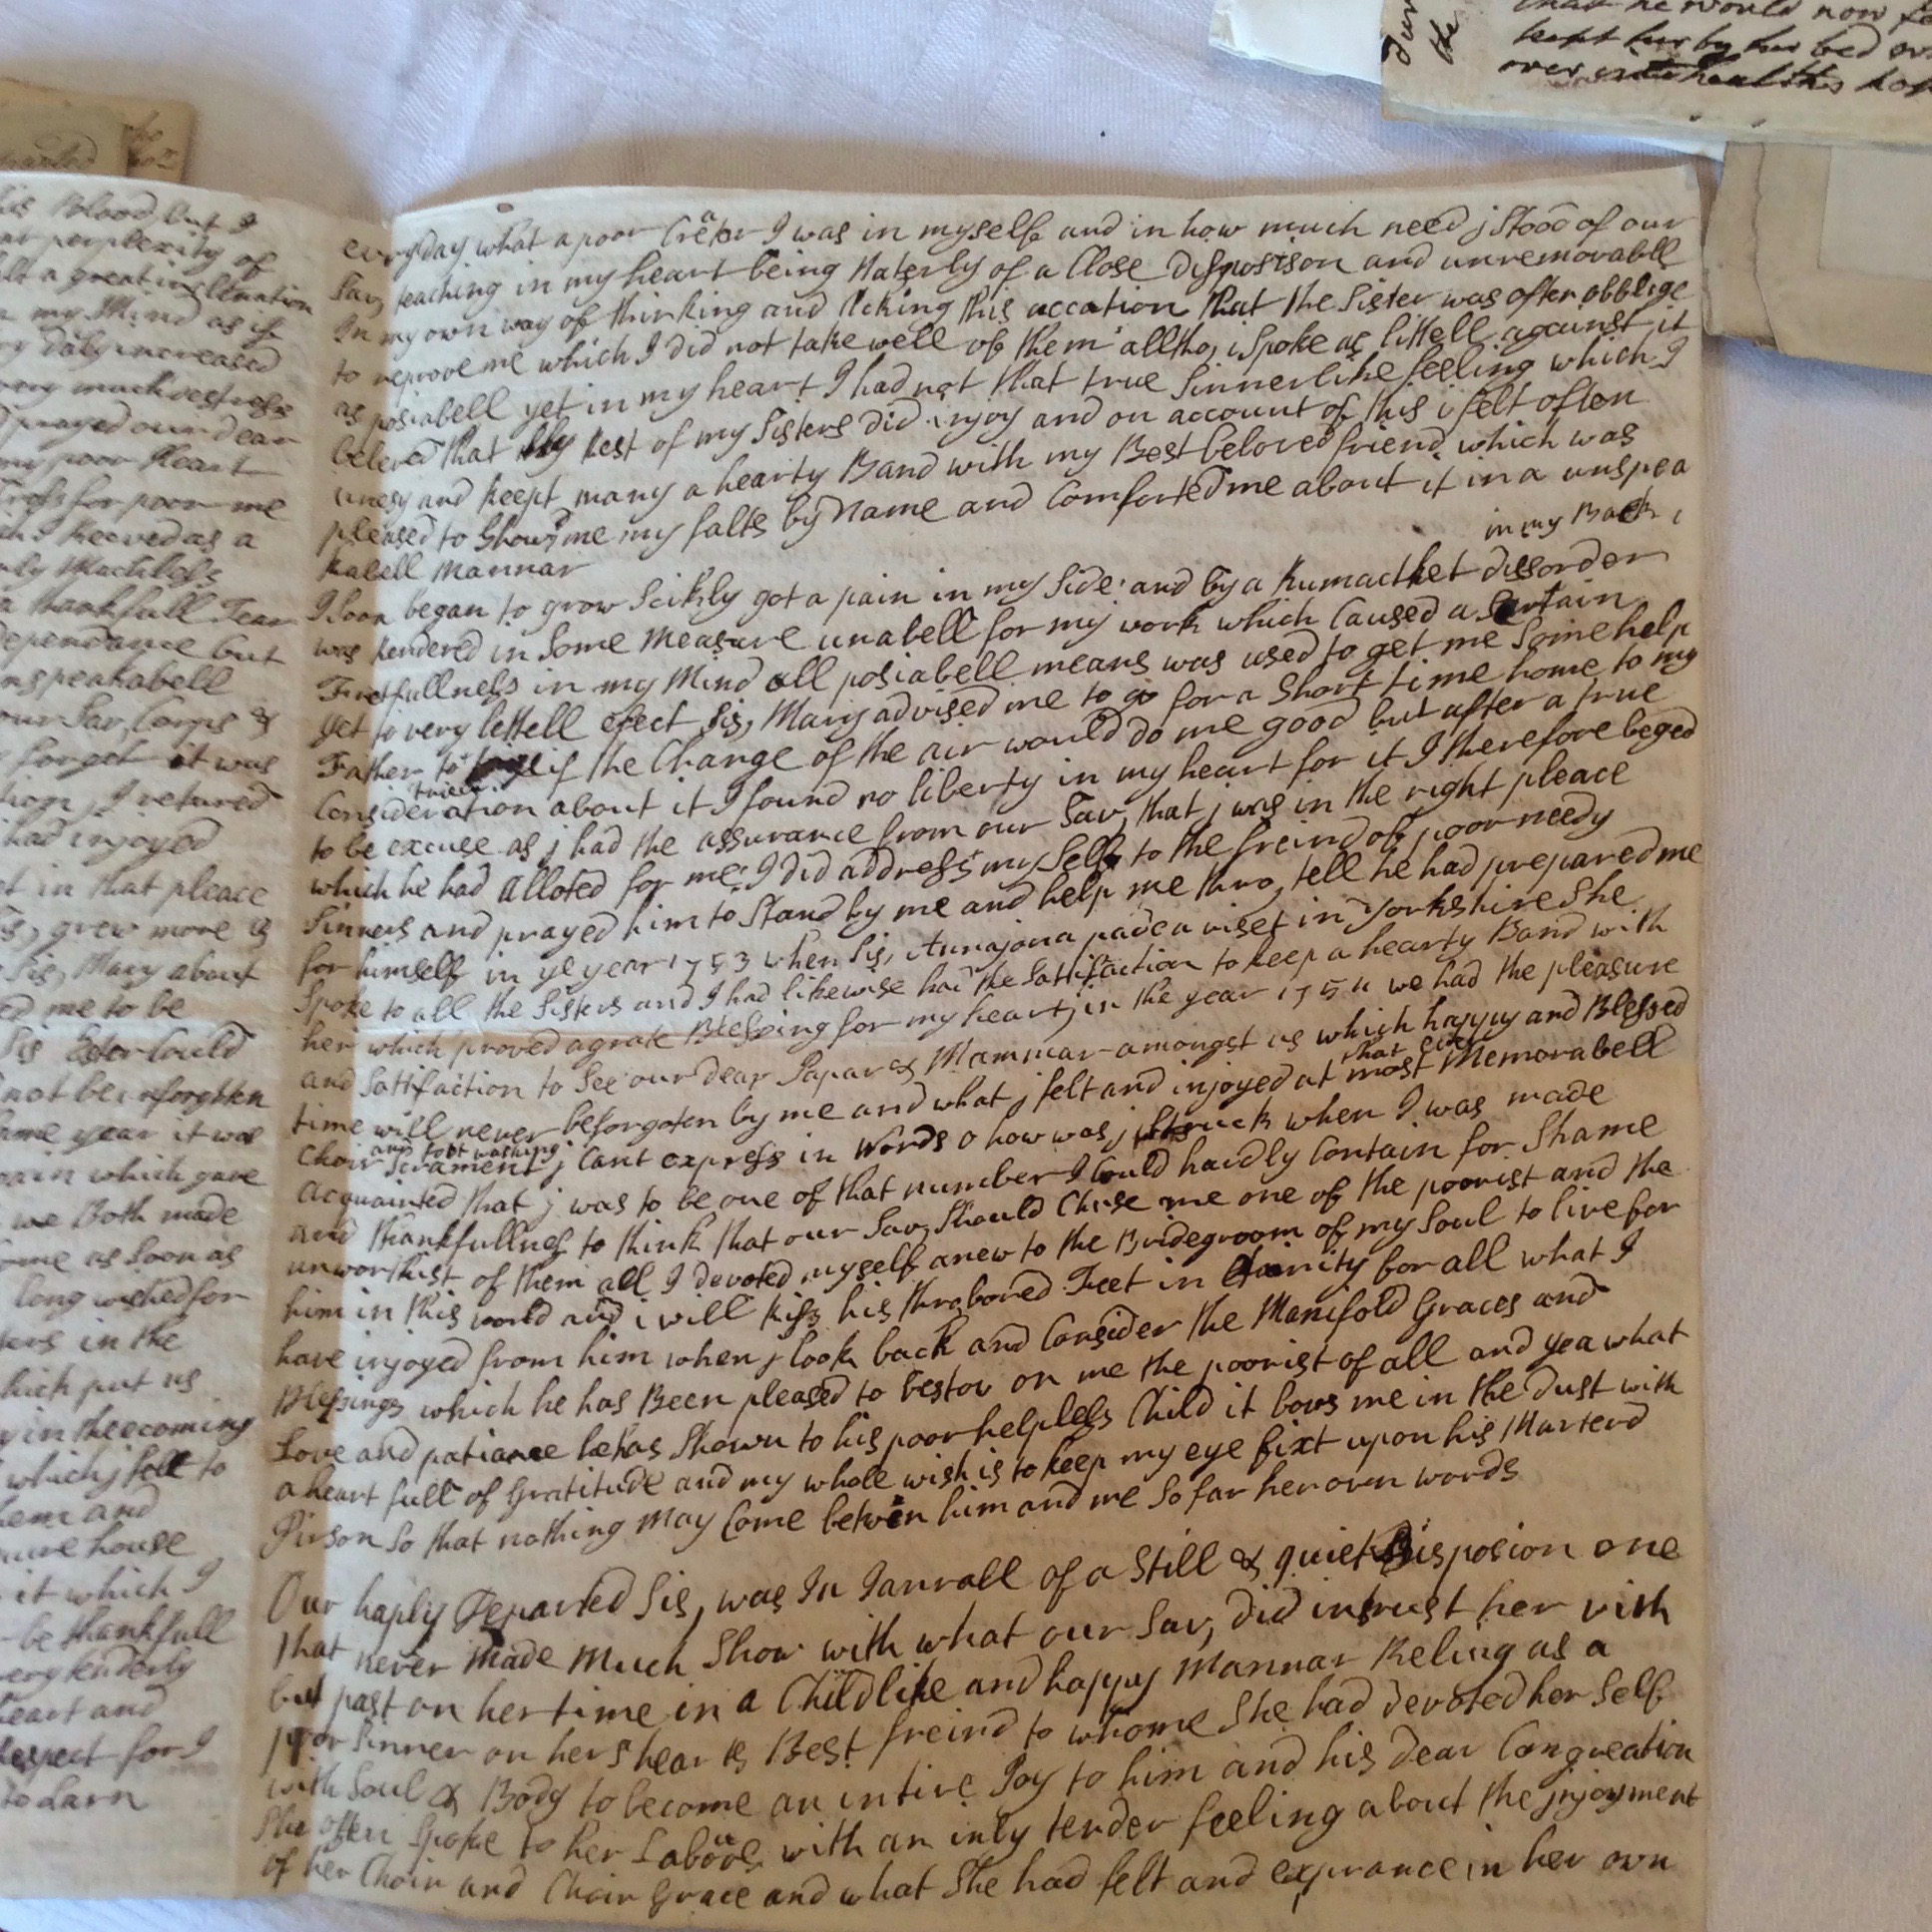 that he would now
kept her by her bed
over
his Blood but I
perplexity of
a great inclination
my Mind as if
daly increased
very much destress
prayed our dear
my poor Heart
Cross for poor me
I Reeved as a
Machless
a thankfull Tear
dependance but
unspeakabell
our Sav, Corps &
forgot it was
I retured
had injoyed
in that pleace
grew more &
Sis, Mary about
me to be
Sis Ester Could
not be inforgotten
same year it was
again which gave
we Both made
come as Soon as
long wished for
in the
which put us
in theecoming
which j felt to
them and
house
it which I
be thankfull
very tenderly
heart and
Respect for I
to Larn
every day what a poor Cretor I was in myself and in how much need j Stood of our
Sav, teaching in my heart being Naterly of a Close Disposison and unremovabell
In my own way of thinking and tcking this accation that the Sister was often obblige
to reprove me which I did not take well of them alltho, i Spoke as littell against it
as posiabell yet in my heart I had not that true Sinnerlike feeling which I
beleved that the Rest of my Sisters did injoy and on account of this i felt often
unesy and keept many a hearty Band with my Best beloved friend which was
pleased to Show me my falts by Name and Comforted me about it in a unspea
kabell Mannar
in my Back i
I Soon began to grow Scikly got a pain in my Side and by a Rumacthet dissorder
was Rendered in Some Measure unabell for my work which Caused a Certain
Fretfullness in my Mind all posiabell means was used to get me Some help
yet to very lettell efect Sis, Mary advised me to go for a Short time home to my
Father to if the Change of the air would do me good but after a true
Consideration about it I found no liberty in my heart for it I therefore beged
to be excuse as j had the assurance from our Sav, that j was in the right pleace
which he had alloted for me I did address my Self to the freind of poor needy
Sinners and prayed him to Stand by me and help me thro, tell he had prepared me
for himself in ye year 1753 when Sis, Annajona pade a viset in Yorkshire She
Spoke to all the Sisters and I had likewise had the Sattifaction to keep a hearty Band with
her which proved a grate Blessing for my heart, in the year 1754 we had the pleasure
and Satifaction to See our dear Papar & Mammar amongst us which happy and Blessed
time will never beforgoten by me and what j felt and injoyed at that ever most Memorabell
Choir and foot washing Scrament j Cant express in Words o how was j Struck when I was made
acquainted that j was to be one of that number I Could hardly Contain for Shame
and thankfullness to think that our Sav, Should Chuse me one of the poorist and the
unworthist of them all I devoted myself anew to the Bridegroom of my Soul to live for
him in this world and i will kiss his throbored Feet in Etarnity for all what I
have injoyed from him when j look back and Consider the Manifold Graces and
Blessings which he has Been pleased to bestow on me the poorist of all and yea what
Love and patiance he has Shown to his poor helpless Child it bows me in the dust with
a heart full of Gratitude and my whole wish is to keep my eye fixt upon his Marterd
Pirson So that nothing May Come betwen him and me So far her own words
Our haply Departed Sis, was In Janrall of a Still & quiet Disposion one
that never made Much Show with what our Sav, did intrust her with
but past on her time in a Childlike and happy Mannar Reling as a
poor Sinner on hers hearts Best freind to whome She had devoted her Self
with Soul & Body to become an intire Joy to him and his dear Congreation
She often Spoke to her Laboor with an inly tender feeling about the injoyment
of her Choir and Choir Grace and what She had felt and expirance in her own